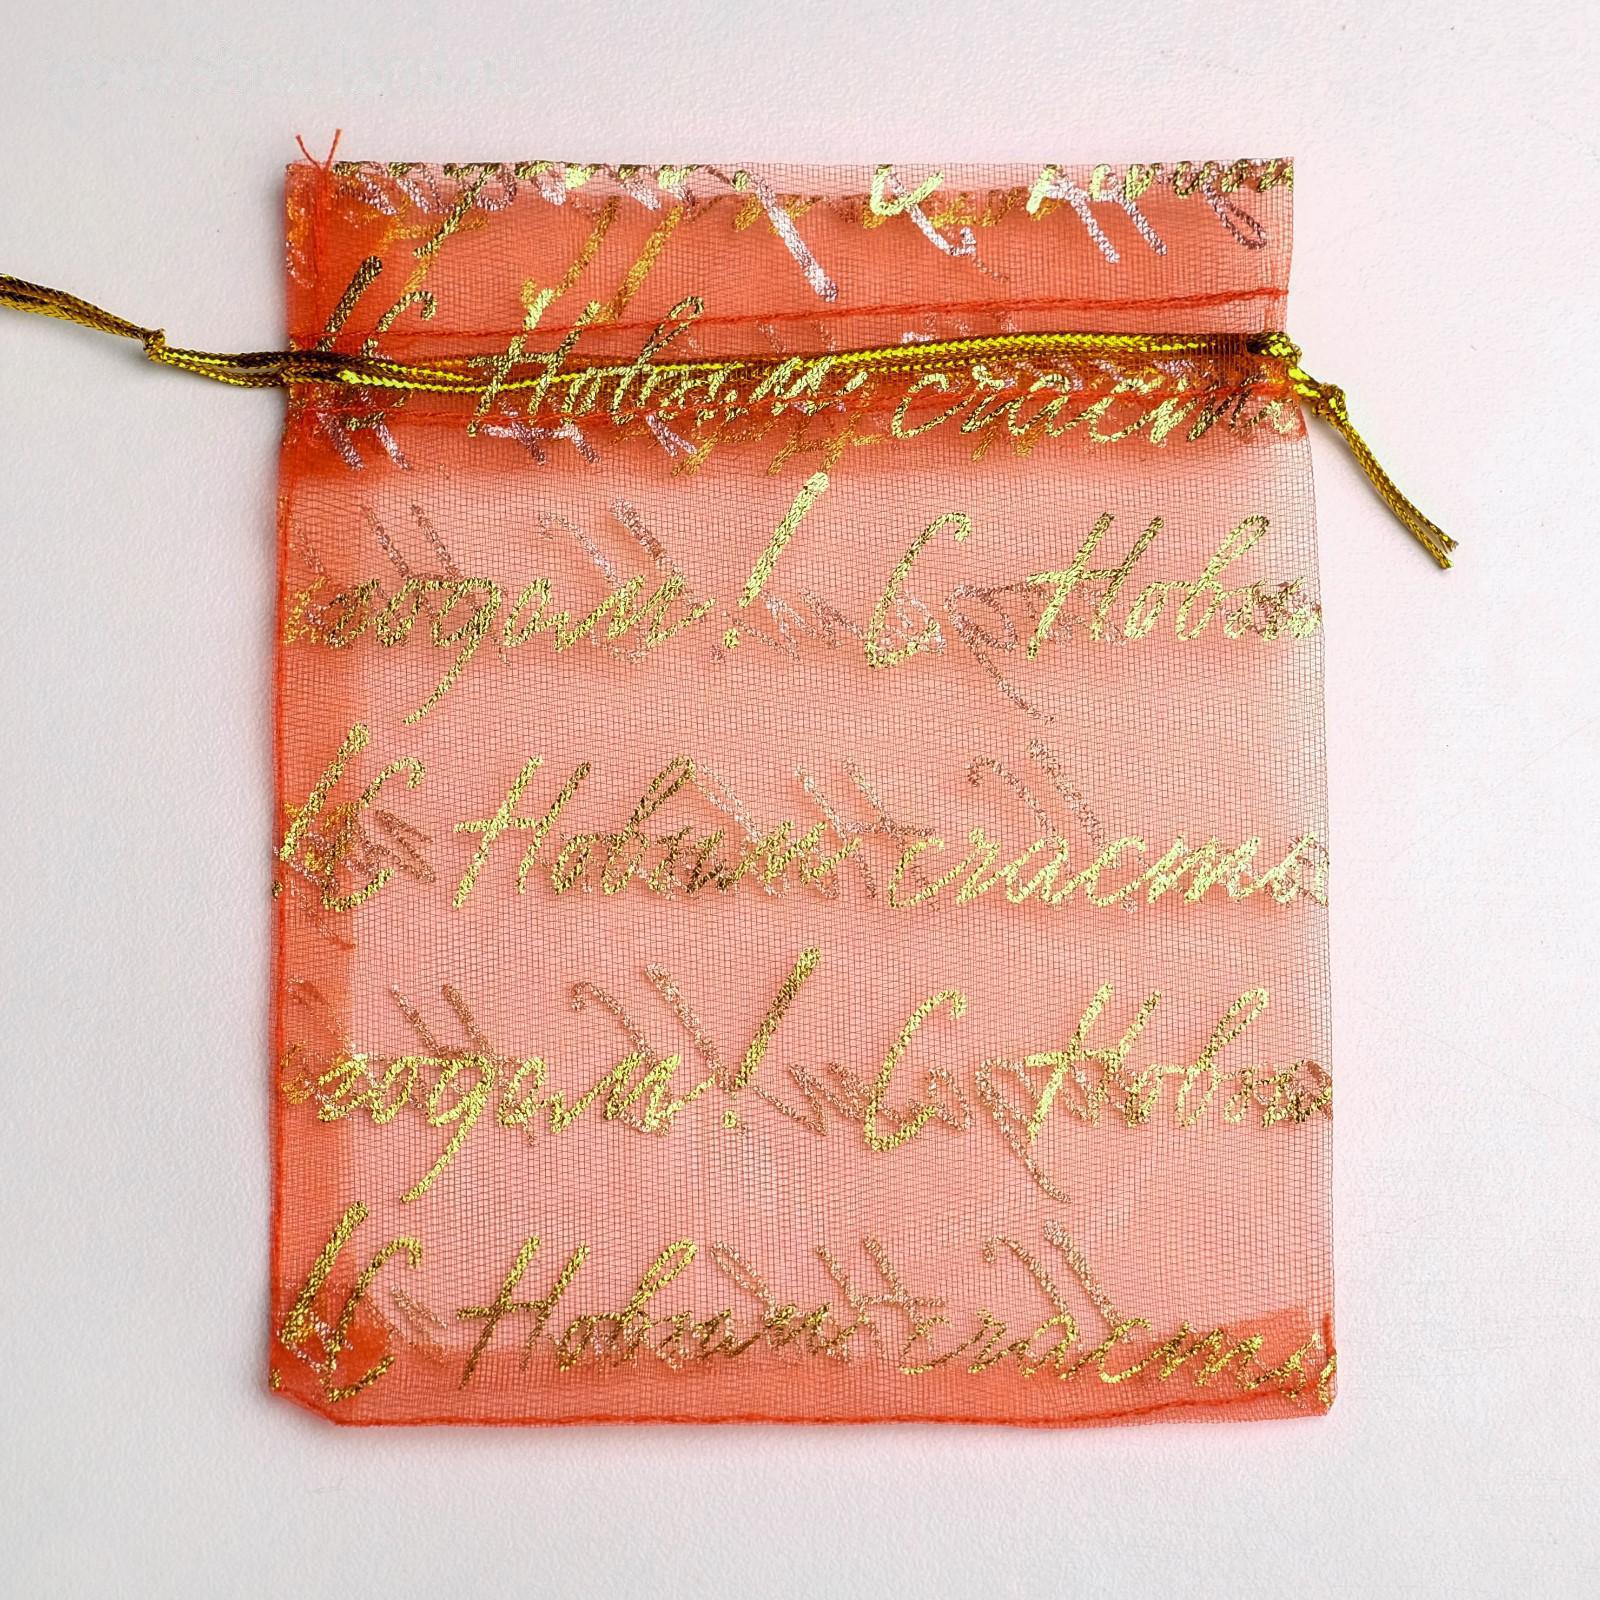 ! С Новым счасть
годом! С Новы
! С Новым счасть
годом! С Новы
! С Новым счасть